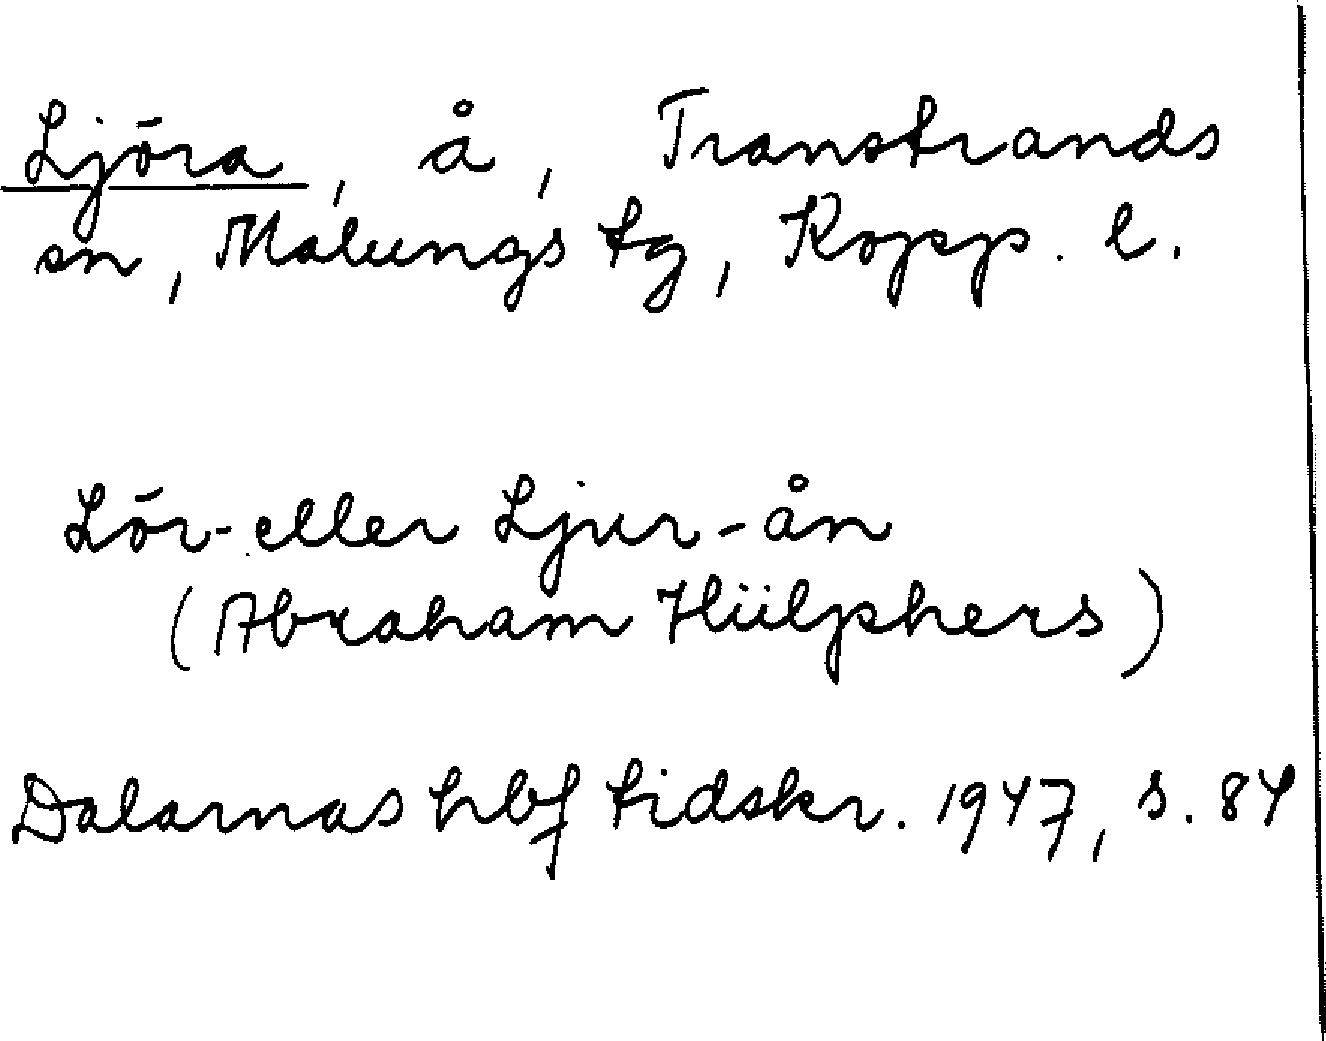 Ljöra, å, Transtrands
sn, Malungs tg, Kopp. l.
Lör- eller Ljur-ån
(Abraham Hülphers)
Dalarnas hbf tidskr. 1947, s. 84